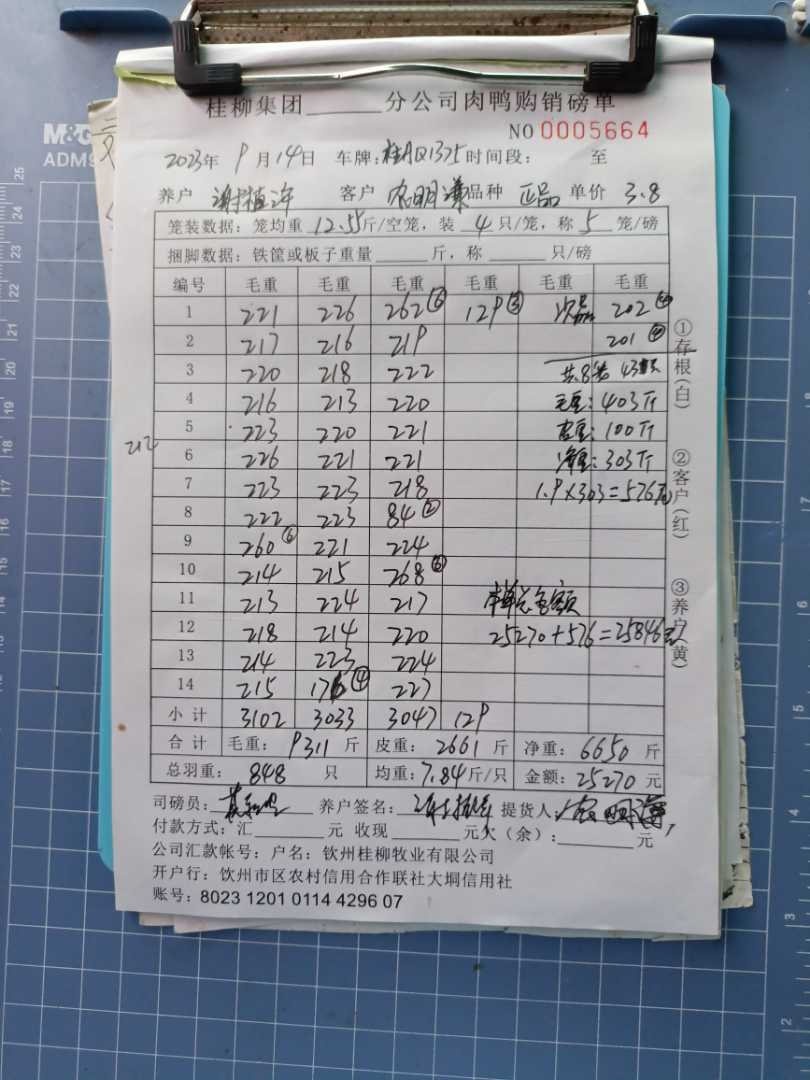 M&G
ADM9
桂柳集团______分公司肉鸭购销磅单
NO 0005664
2023年 9月14日 车牌:桂AQ1375 时间段: 至
养户 谢植许 客户 农明谦 品种 正品 单价 3.8
笼装数据: 笼均重 12.55 斤/空笼, 装 4 只/笼, 称 5 笼/磅
捆脚数据: 铁筐或板子重量______斤, 称______只/磅
编号 毛重 毛重 毛重 毛重 毛重 毛重
1 221 226 262⑥ 129③ 次品 202④
2 217 216 219 201④
3 220 218 222 共8笼 43只
4 216 213 220 毛重: 403斤
5 223 220 221 皮重: 100斤
212
6 226 221 221 净重: 303斤
7 223 223 218 1.9×303=576元
8 222 223 84②
9 260⑥ 221 224
10 214 215 268⑥
11 213 224 217 本单总金额
12 218 214 220 25270+576=25846元
13 214 223 224
14 215 176④ 227
小计 3102 3033 3047 129
合计 毛重: 9311 斤 皮重: 2661 斤 净重: 6650 斤
总羽重: 848 只 均重: 7.84斤/只 金额: 25270 元
司磅员: 养户签名: 提货人:
付款方式: 汇______元 收现______元欠(余):______元
公司汇款帐号: 户名: 钦州桂柳牧业有限公司
开户行: 钦州市区农村信用合作联社大垌信用社
账号: 8023 1201 0114 4296 07
①存根(白)
②客户(红)
③养户(黄)